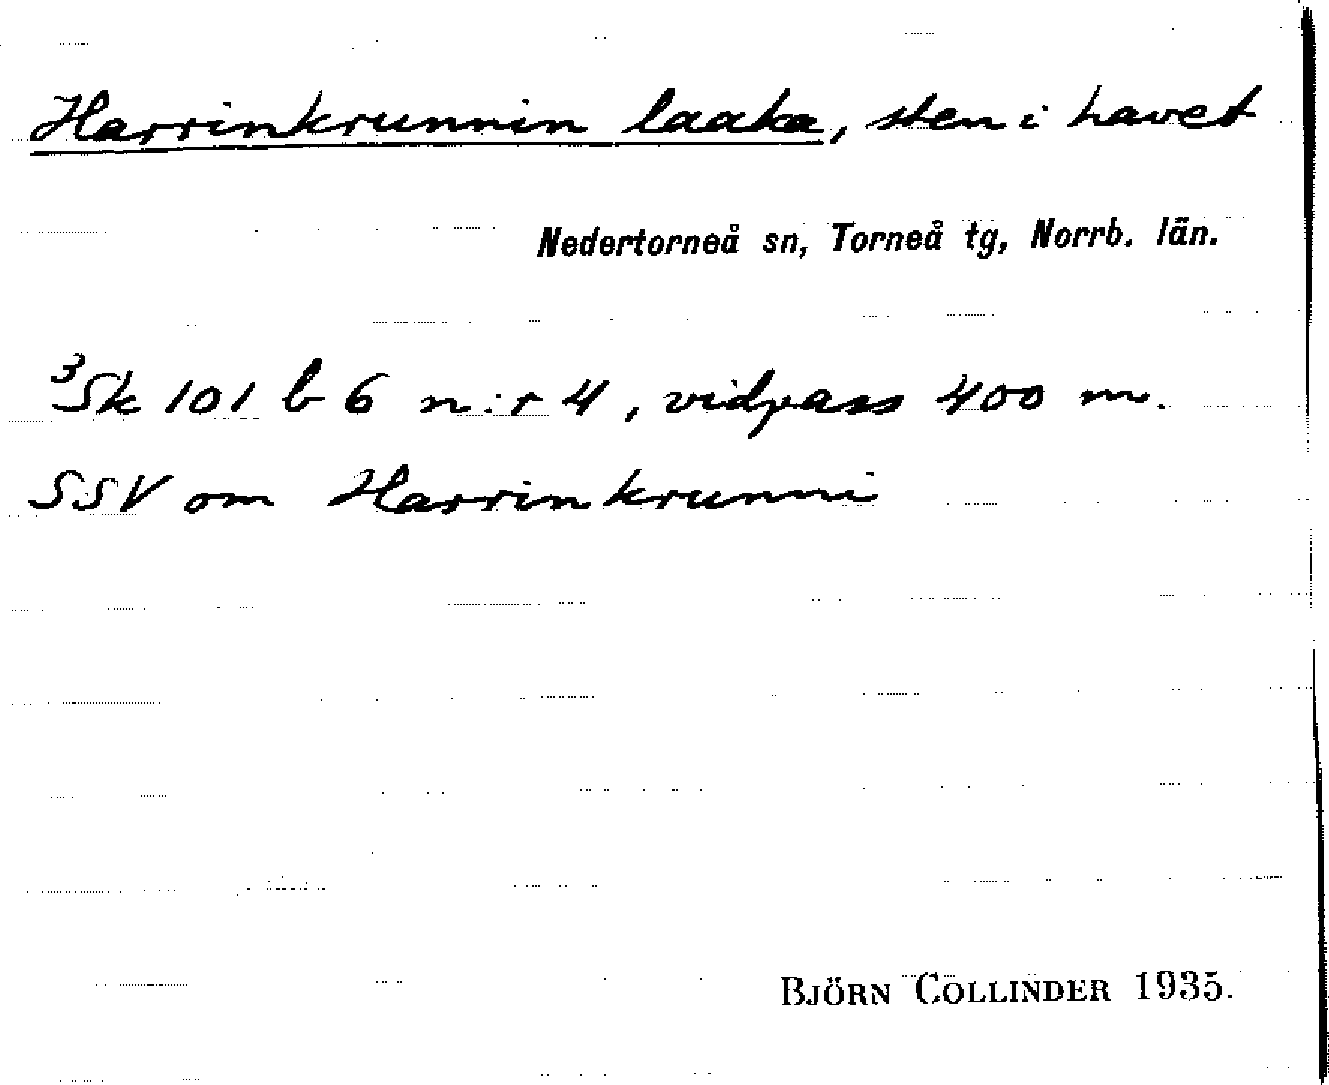 Harrinkrunnin laaka, sten i havet
Nedertorneå sn, Torneå tg, Norrb. län.
³Sk 101 b 6 n:r 4, vidpass 400 m.
SSV om Harrinkrunni
BJÖRN COLLINDER 1935.